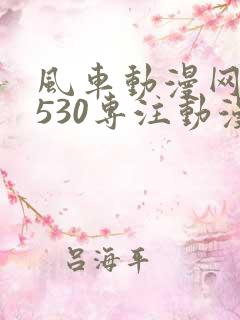 風車動漫网
530専注動漫
吕海平